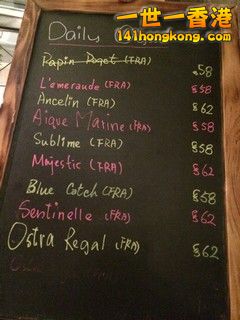 一世一香港
141hongkong.com
Daily
Papin Poget (FRA) $58
L'emeraude (FRA) $58
Ancelin (FRA) $62
Aique Marine (FRA) $58
Sublime (FRA) $58
Majestic (FRA) $62
Blue Catch (FRA) $58
Sentinelle (FRA) $62
Ostra Regal (FRA) $62